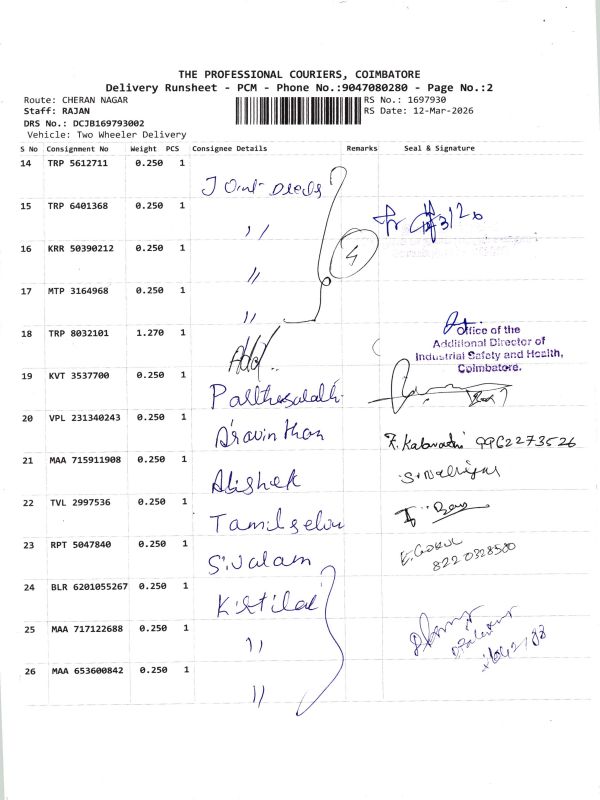 THE PROFESSIONAL COURIERS, COIMBATORE
Delivery Runsheet - PCM - Phone No.:9047080280 - Page No.:2
Route: CHERAN NAGAR RS No.: 1697930
Staff: RAJAN RS Date: 12-Mar-2026
DRS No.: DCJB169793002
Vehicle: Two Wheeler Delivery
S No Consignment No Weight PCS Consignee Details Remarks Seal & Signature
14 TRP 5612711 0.250 1 Joint
15 TRP 6401368 0.250 1 〃
16 KRR 50390212 0.250 1 〃
4
17 MTP 3164968 0.250 1 〃
18 TRP 8032101 1.270 1 Add
Office of the
Additional Director of
Industrial Safety and Health,
Coimbatore.
19 KVT 3537700 0.250 1
20 VPL 231340243 0.250 1 Aravinthan 9962273526
21 MAA 715911908 0.250 1 Abishek
22 TVL 2997536 0.250 1 Tamilselvu
23 RPT 5047840 0.250 1 E. GOKUL
8220328500
24 BLR 6201055267 0.250 1
25 MAA 717122688 0.250 1 〃
26 MAA 653600842 0.250 1 〃